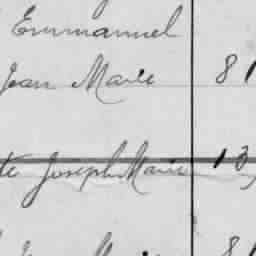 Emmanuel
Jean Marie 81
te Joseph Marie 13
81